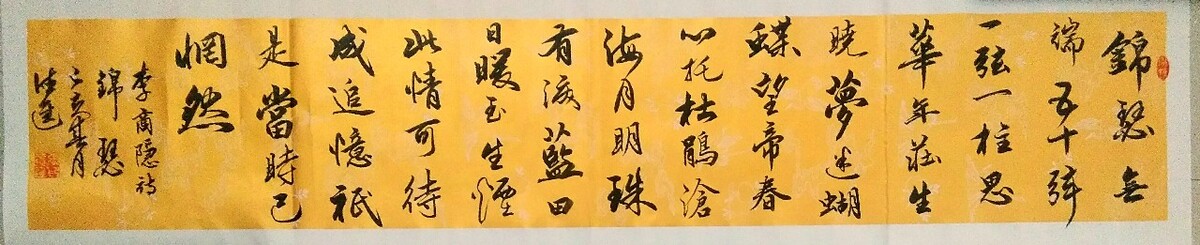 錦瑟無
端五十弦
一弦一柱思
華年莊生
曉夢迷蝴
蝶望帝春
心托杜鵑滄
海月明珠
有淚藍田
日暖玉生煙
此情可待
成追憶祇
是當時已
惘然
李商隱詩
錦瑟